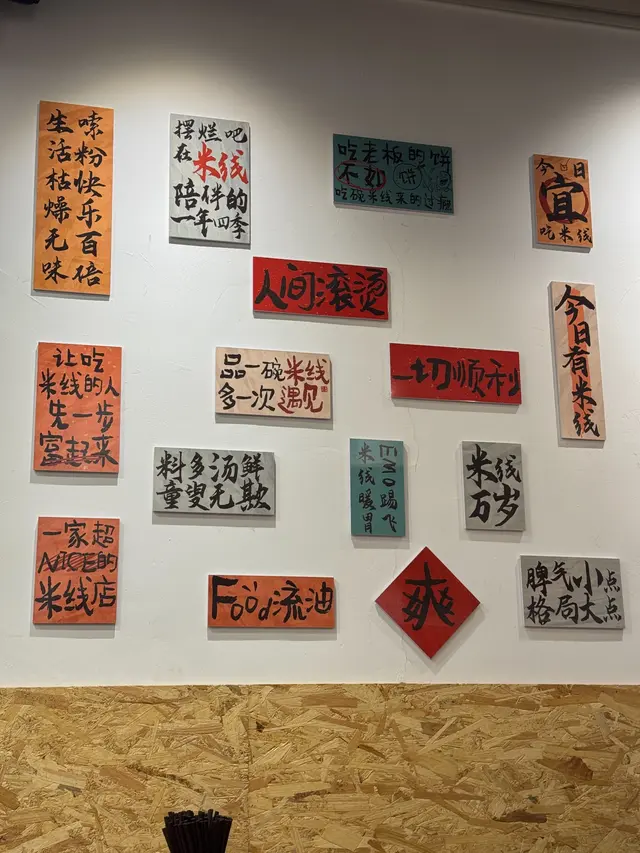 嗦粉快乐百倍
生活枯燥无味
摆烂吧
在米线
陪伴的
一年四季
吃老板的饼
不如
饼
吃碗米线来的过瘾
今日
宜
吃米线
人间滚烫
今日有米线
让吃
米线的人
先一步
富起来
品一碗米线
多一次遇见
一切顺利
料多汤鲜
童叟无欺
EMO踢飞
米线暖胃
米线
万岁
一家超
NICE的
米线店
Food流油
爽
脾气小点
格局大点